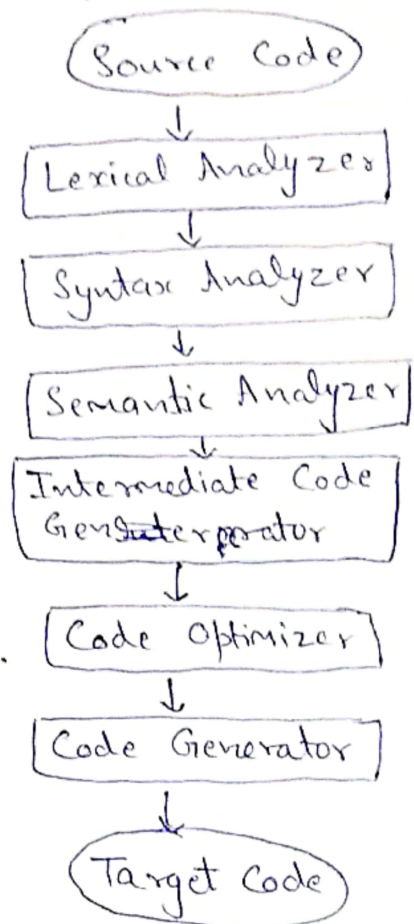 Source Code
Lexical Analyzer
Syntax Analyzer
Semantic Analyzer
Intermediate Code
Generator
Code Optimizer
Code Generator
Target Code